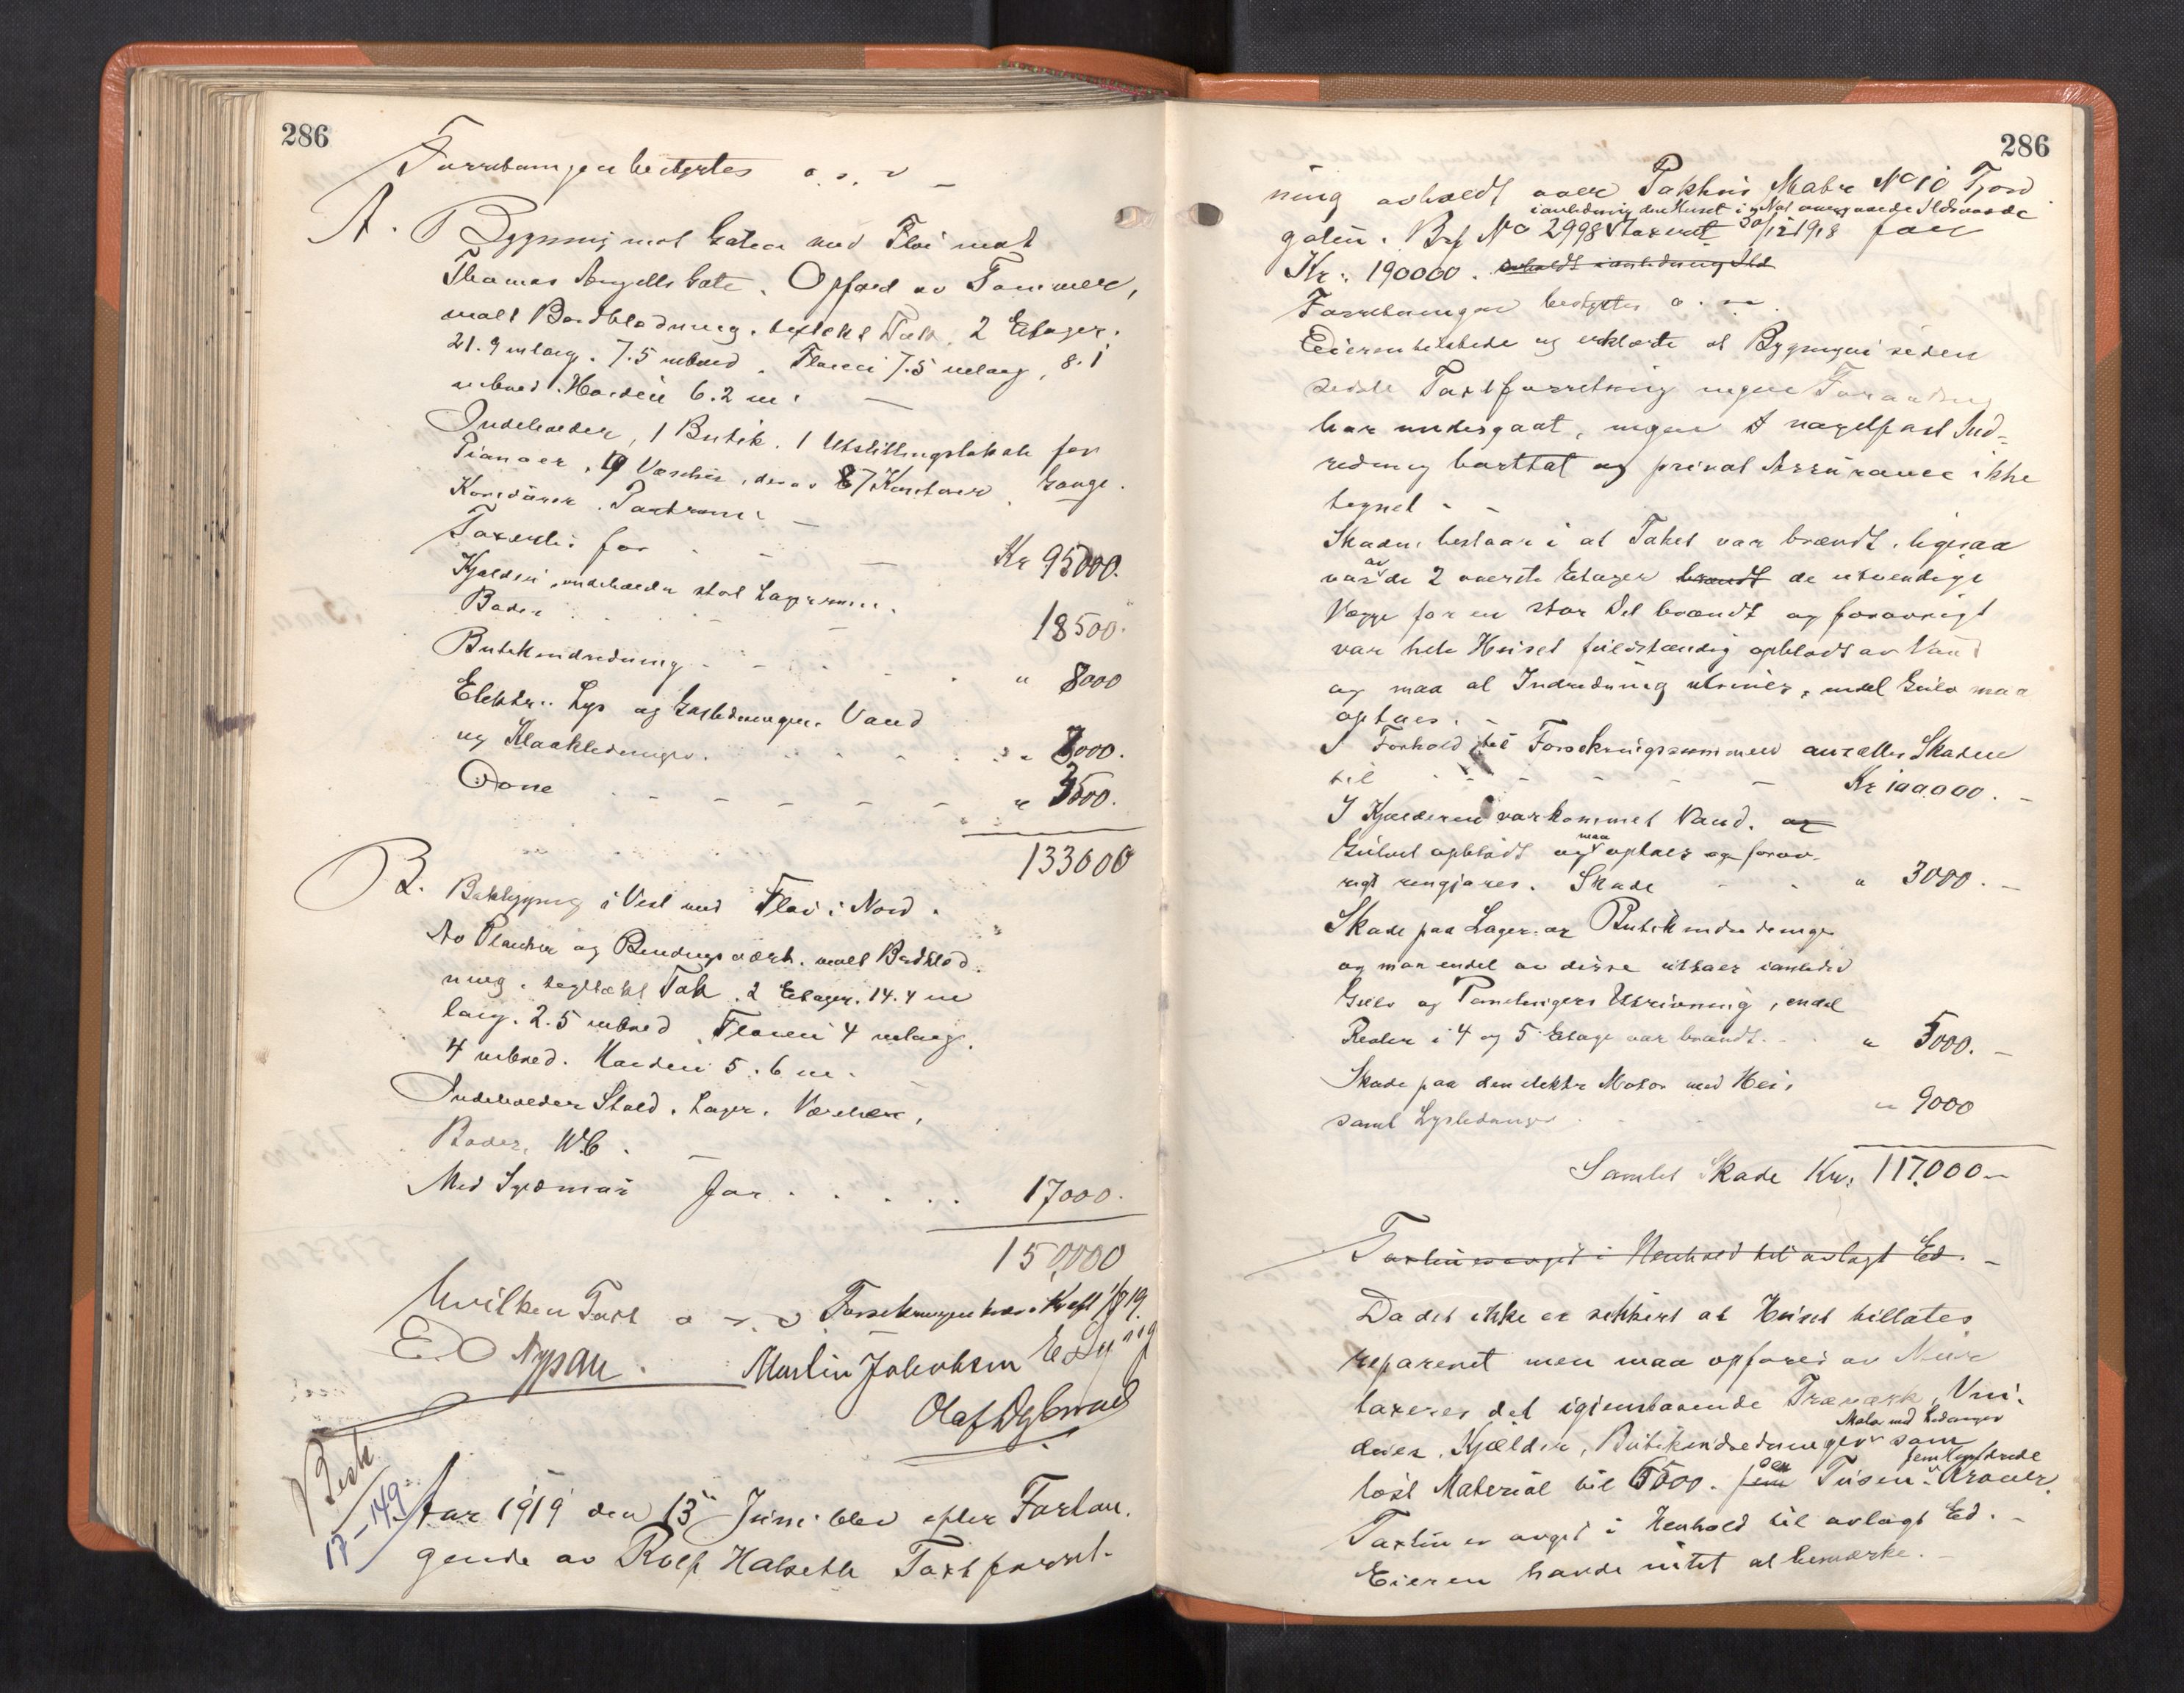 286
Forretningen bestyrtes o. s. v
A. Bygning mot Gaten med Fløi mot
Thomas Angells Gate. Opført av Tømmer,
malt Bordklædning. tegltækt Tak. 2 Etager.
21.9 m lang. 7.5 m bred. Fløien 7.5 m lang, 8.1
m bred. Høiden 6.2 m.
Indeholder, 1 Butik. 1 Utstillingslokale for
Pianoer, 9 Værelser, derav 7 Kontorer. Gange.
Korridorer.
Taxertes for Kr 95000.
Kjelder, indeholder stort Lagerrum.
Boder 18500.
Butikindredning " 8000
Elektr. Lys og Gasledninger. Vand
og Kloakledninger. " 8000.
Ovne " 3500.
133000
B. Bakbygning i Vest med Fløi i Nord.
Av Planker og Bindingsværk. malt Bordklæd-
ning. tegltækt Tak. 2 Etager. 14.4 m
lang. 2.5 m bred. Fløien 4 m lang.
4 m bred. Høiden 5.6 m.
Indeholder Stald. Lager. Værelser,
Boder, W.C.
Med Ildsmur for 17000.
150,000
Hvilken Taxt o. s. v. Forsikringen træder i Kraft 1/8 19.
E. O Nypan. Martin Jakobsen E. Lysig
Olaf Dybwad
Besk
17-149
Aar 1919 den 13 Juni blev efter Forlan-
gende av Rolf Halseth Taxtforret-
286
ning avholdt over Pakhus Matr No 10 Fjord
i anledning den Huset i Nat overgaaede Ildsvaade
gaten. Brf No 2998 Taxeret 30/12 1918 for
Kr. 190000. avholdt i anledning Ild
Forretningen bestyrtes o. s. v.
Eieren tilstede og erklærte at Bygningen siden
sidste Taxtforretning ingen Forandring
har undergaat, ingen nagelfast Ind-
redning borttat og privat Assurance ikke
tegnet.
Skaden bestaar i at Taket var brændt. ligesaa
var av de 2 øverste Etager brændt de utvendige
Vægge for en stor Del brændt og forøvrigt
var hele Huset fuldstændig opbløtt av Vand
og maa al Indredning utrives, endel Gulv maa
optaes.
I Forhold til Forsikringssummen ansættes Skaden
til Kr 100.000.
I Kjælderen var kommet Vand. og
Gulvet opblødt og maa optaes og forøv-
rigt rengjøres. Skade " 3000.
Skade paa Lager og Butikindredninger
og maa endel av disse uttaes ianledn
Gulv og Panelingers Utrivning, endel
Reoler i 4 og 5 Etage var brændt. " 5000.
Skade paa den elektr Motor med Heis
samt Lysledninger " 9000
Samlet Skade Kr. 117.000
Taxten er avgit i Henhold til avlagt Ed.
Da det ikke er sikkert at Huset tillates
reparert men maa opføres av Mur
taxeres det igjenstaaende Træverk, Vin-
duer, Kjælder, Butikindredninger Motor med Ledninger som
løst Material til 6500. fem sex Tusen femhundrede Kroner.
Taxten er avgit i Henhold til avlagt Ed.
Eieren havde intet at bemærke.